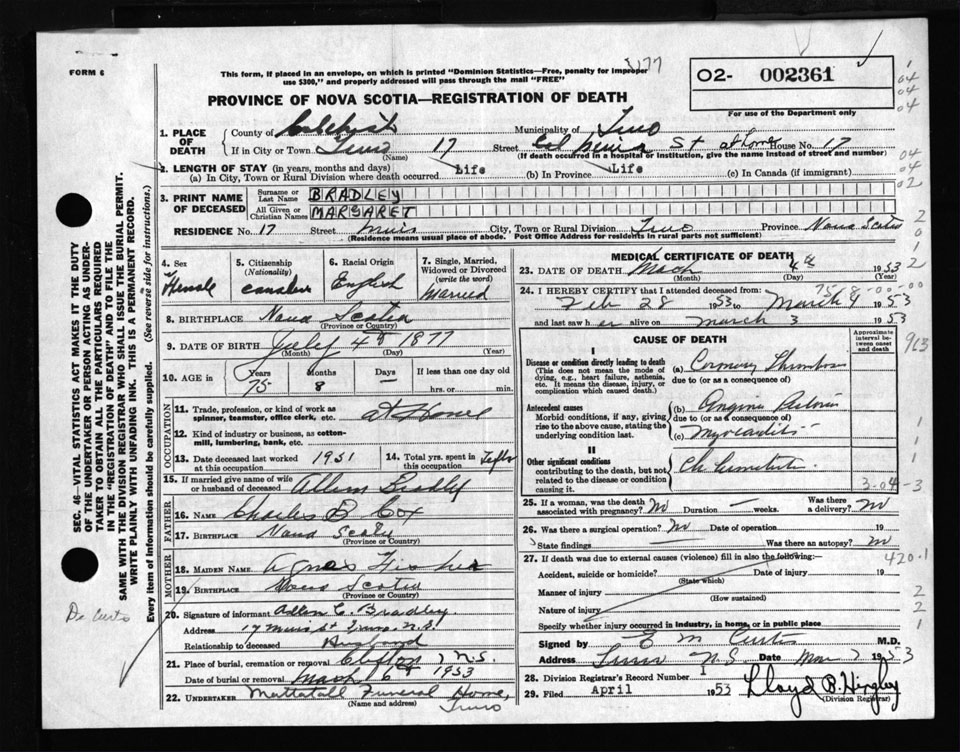 FORM 6
This form, if placed in an envelope, on which is printed "Dominion Statistics—Free, penalty for improper
use $300," and properly addressed will pass through the mail "FREE"
5177
PROVINCE OF NOVA SCOTIA—REGISTRATION OF DEATH
02- 002361
For use of the Department only
04
04
04
04
04
02
2
0
1
2
1. PLACE OF DEATH
County of Colchester Municipality of Truro
If in City or Town Truro (Name) 17 Street St at home House No. 17
(If death occurred in a hospital or institution, give the name instead of street and number)
2. LENGTH OF STAY (in years, months and days)
(a) In City, Town or Rural Division where death occurred Life (b) In Province Life (c) In Canada (if immigrant)
3. PRINT NAME OF DECEASED
Surname or Last Name BRADLEY
All Given or Christian Names MARGARET
RESIDENCE No. 17 Street Muir City, Town or Rural Division Truro Province Nova Scotia
(Residence means usual place of abode. Post Office Address for residents in rural parts not sufficient)
4. Sex Female
5. Citizenship (Nationality) Canadian
6. Racial Origin English
7. Single, Married, Widowed or Divorced (write the word) Married
8. BIRTHPLACE Nova Scotia
(Province or Country)
9. DATE OF BIRTH July 4th 1877
(Month) (Day) (Year)
10. AGE in Years 75 Months 8 Days — If less than one day old
hrs. or min.
OCCUPATION
11. Trade, profession, or kind of work as spinner, teamster, office clerk, etc. at Home
12. Kind of industry or business, as cotton-mill, lumbering, bank, etc.
13. Date deceased last worked at this occupation 1951
14. Total yrs. spent in this occupation Life
15. If married give name of wife or husband of deceased Allen Bradley
FATHER
16. NAME Charles B Cox
17. BIRTHPLACE Nova Scotia
(Province or Country)
MOTHER
18. MAIDEN NAME Agnes Fisher
19. BIRTHPLACE Nova Scotia
(Province or Country)
20. Signature of informant Allen C. Bradley
Address 17 Muir St Truro N.S.
Relationship to deceased Husband
21. Place of burial, cremation or removal Clifton N.S.
Date of burial or removal March 6th 1953
22. UNDERTAKER Mattatall Funeral Home,
(Name and address) Truro
MEDICAL CERTIFICATE OF DEATH
23. DATE OF DEATH March 4th 1953
(Month) (Day) (Year)
758-00-00
24. I HEREBY CERTIFY that I attended deceased from:
Feb 28 1953 March 4 1953
and last saw her alive on March 3 1953
CAUSE OF DEATH
Approximate interval between onset and death
I
Disease or condition directly leading to death
(This does not mean the mode of dying, e.g., heart failure, asthenia, etc. It means the disease, injury, or complication which caused death.)
(a) Coronary Thrombosis
due to (or as a consequence of)
Antecedent causes
Morbid conditions, if any, giving rise to the above cause, stating the underlying condition last.
(b) Angina Pectoris
due to (or as a consequence of)
(c) Myocarditis
II
Other significant conditions
contributing to the death, but not related to the disease or condition causing it.
3-04-3
25. If a woman, was the death associated with pregnancy? No Duration — weeks. Was there a delivery? No
26. Was there a surgical operation? No Date of operation 19
State findings Was there an autopsy? No
27. If death was due to external causes (violence) fill in also the following:
420.1
Accident, suicide or homicide? Date of injury 19
(State which)
Manner of injury
(How sustained)
Nature of injury
Specify whether injury occurred in industry, in home, or in public place
Signed by E M Curtis M.D.
Address Truro N.S Date Mar 7 1953
28. Division Registrar's Record Number 1
29. Filed April 1953 Lloyd B. Hingley
(Division Registrar)
SEC. 46—VITAL STATISTICS ACT MAKES IT THE DUTY
OF THE UNDERTAKER OR PERSON ACTING AS UNDER-
TAKER TO OBTAIN ALL THE PARTICULARS REQUIRED
IN THE "REGISTRATION OF DEATH" AND TO FILE THE
SAME WITH THE DIVISION REGISTRAR WHO SHALL ISSUE THE BURIAL PERMIT.
WRITE PLAINLY WITH UNFADING INK. THIS IS A PERMANENT RECORD.
Every item of Information should be carefully supplied. (See reverse side for instructions.)
Dr Curtis